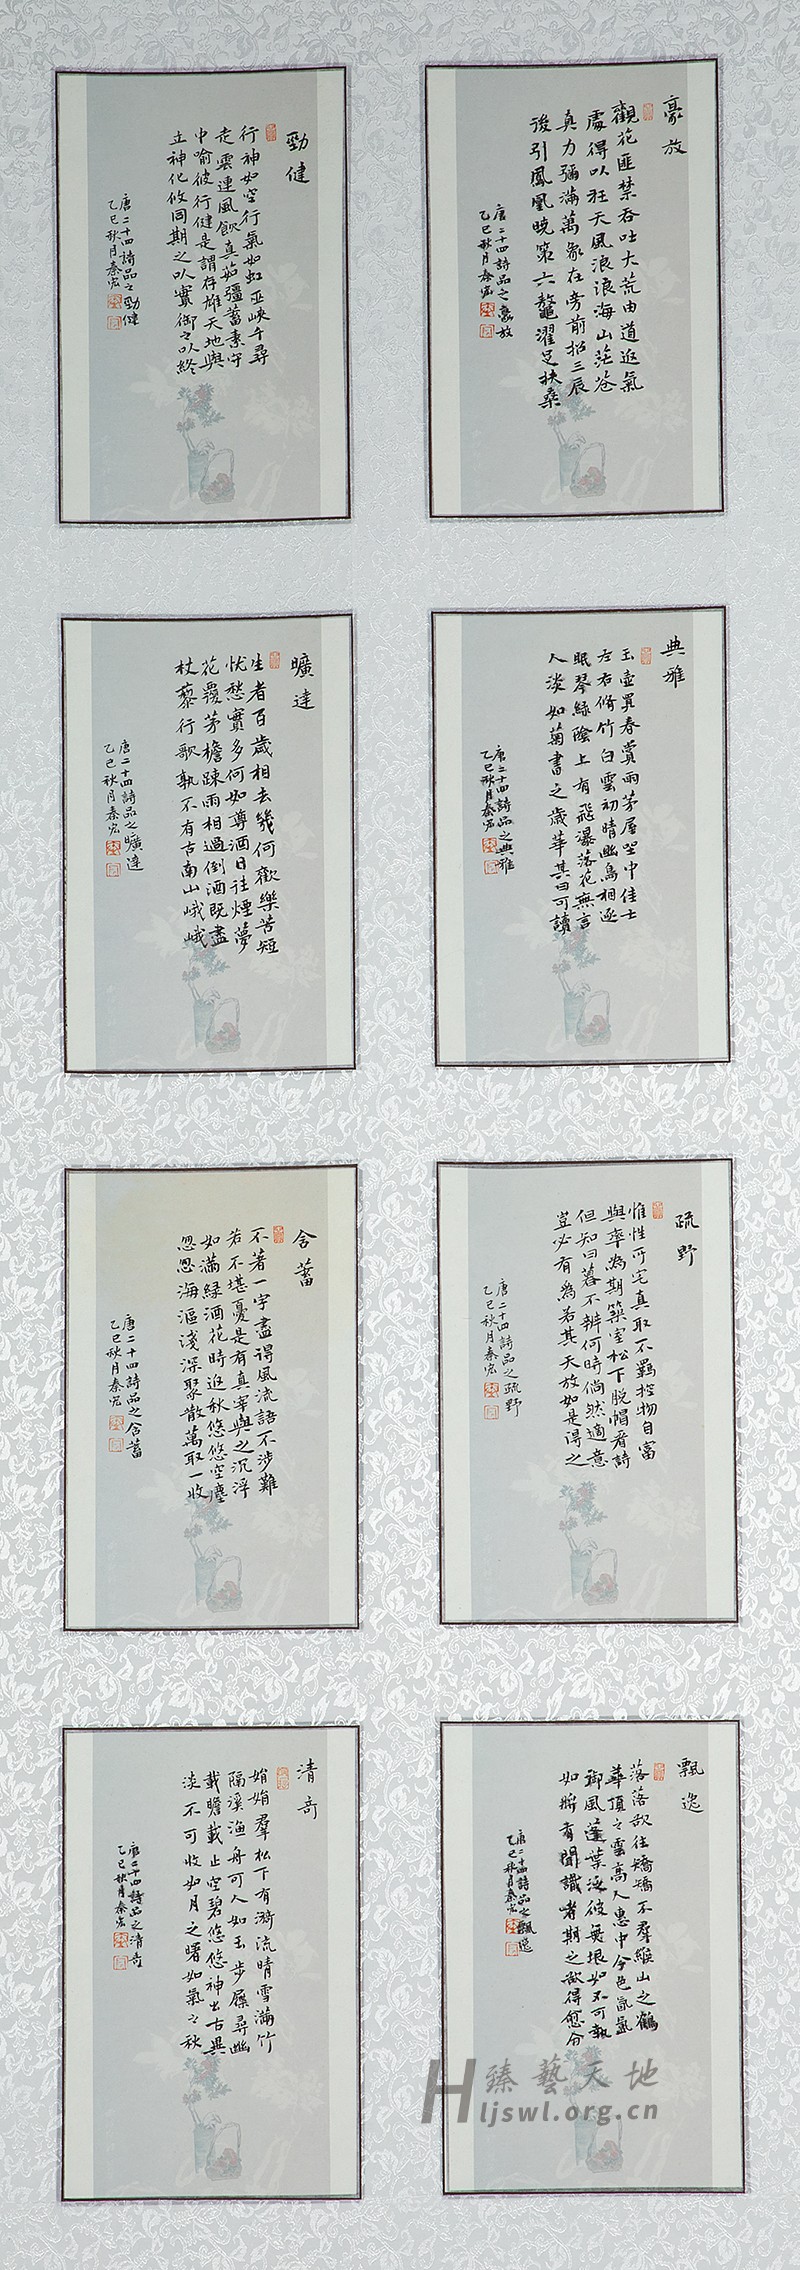 豪放
觀花匪禁吞吐大荒由道返氣
處得以狂天風浪浪海山茫蒼
真力彌滿萬象在旁前招三辰
後引鳳凰曉策六鰲濯足扶桑
唐二十四詩品之豪放
乙巳秋月秦宏
勁健
行神如空行氣如虹巫峽千尋
走雲連風飲真茹彊蓄素守
中喻彼行健是謂存雄天地與
立神化攸同期之以實御之以終
唐二十四詩品之勁健
乙巳秋月秦宏
典雅
玉壺買春賞雨茅屋坐中佳士
左右脩竹白雲初晴幽鳥相逐
眠琴綠陰上有飛瀑落花無言
人淡如菊書之歲華其曰可讀
唐二十四詩品之典雅
乙巳秋月秦宏
曠達
生者百歲相去幾何歡樂苦短
忧愁實多何如尊酒日往煙夢
花覆茅檐疎雨相過倒酒既盡
杖藜行歌孰不有古南山峨峨
唐二十四詩品之曠達
乙巳秋月秦宏
疏野
惟性所宅真取不羈控物自富
與率為期築室松下脱帽看詩
但知旦暮不辨何時倘然適意
豈必有為若其天放如是得之
唐二十四詩品之疏野
乙巳秋月秦宏
含蓄
不著一字盡得風流語不涉難
若不堪憂是有真宰與之沉浮
如滿綠酒花時返秋悠悠空塵
忽忽海漚淺深聚散萬取一收
唐二十四詩品之含蓄
乙巳秋月秦宏
飄逸
落落欲往矯矯不羣緱山之鶴
華頂之雲高人惠中令色氤氳
御風蓬葉泛彼無垠如不可執
如將有聞識者期之欲得愈分
唐二十四詩品之飄逸
乙巳秋月秦宏
清奇
娟娟羣松下有漪流晴雪滿竹
隔溪漁舟可人如玉步屧尋幽
載瞻載止空碧悠悠神出古異
淡不可收如月之曙如氣之秋
唐二十四詩品之清奇
乙巳秋月秦宏
臻藝天地
Hljswl.org.cn